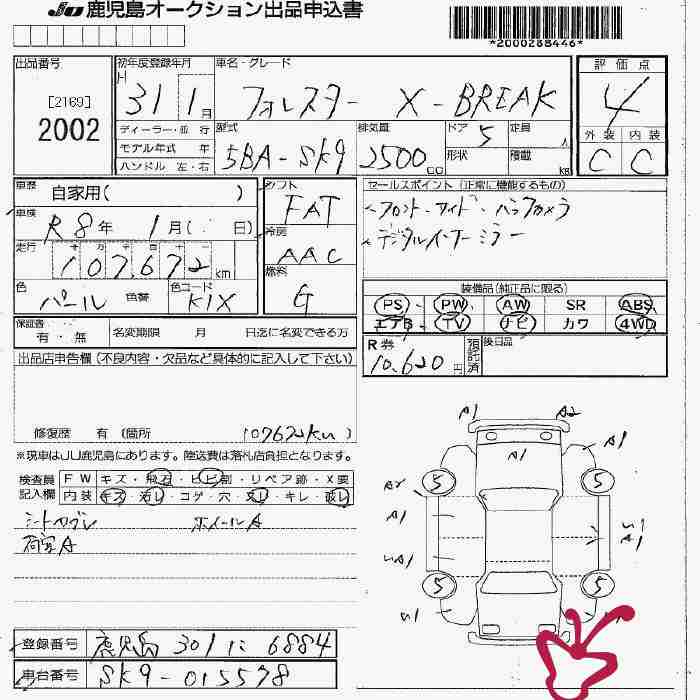 JU 鹿児島オークション出品申込書
*2000288446*
出品番号
[2169]
2002
初年度登録年月
H
31 1月
車名・グレード
フォレスター X-BREAK
評価点
4
外装 内装
C C
ディーラー・並行
モデル年式 年
ハンドル 左・右
型式
5BA-SK9
排気量
2500 cc
ドア 5
形状
定員 人
積載 kg
車歴
自家用( )
車検
R8年 1月( 日)
走行 十 万 千 百 十 一
107,672 km
色
パール
色替
色コード
K1X
シフト
FAT
冷房
AAC
燃料
G
セールスポイント (正常に機能するもの)
フロント・サイド・バックカメラ
デジタルインナーミラー
装備品 (純正品に限る)
PS PW AW SR ABS
エアB TV ナビ カワ 4WD
保証書
有・無
名変期限 月 日迄に名変できる方
R券
10,620円
預託済
後日品
出品店申告欄 (不良内容・欠品など具体的に記入して下さい)
修復歴 有 (箇所
107672km
※現車はJU鹿児島にあります。陸送費は落札店負担となります。
検査員
記入欄
FW キズ・飛石・ヒビ割・リペア跡・X要
内装 キズ・汚レ・コゲ・穴・スレ・キレ・破レ
シートヨゴレ ホイールA
荷室A
A1 A2
A1 A1
5 5
A2
A1
A1
5 5
登録番号 鹿児島 301 に 6884
車台番号 SK9-015578